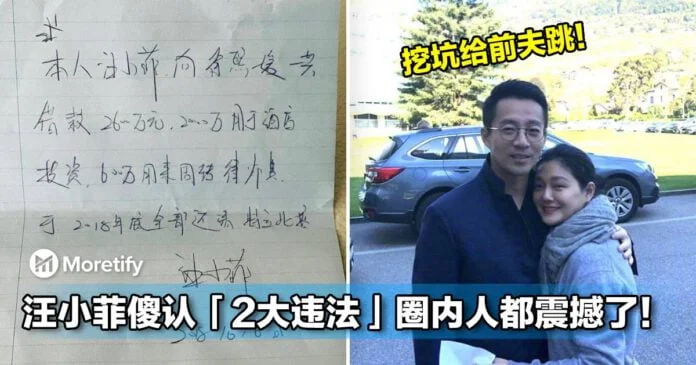 挖坑给前夫跳!
本人汪小菲,向徐熙媛共
借款 2600万元,2000万用于酒店
投资,600万用来周转
于2018年底全部还清 特立此
汪小菲
Moretify
汪小菲傻认「2大违法」圈内人都震撼了!